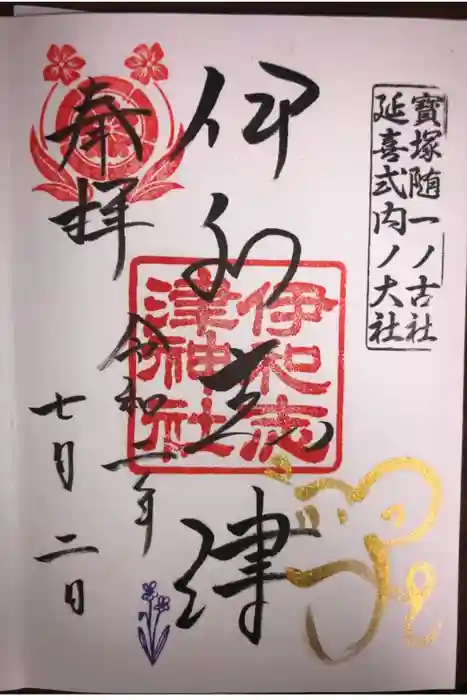 寶塚随一ノ古社
延喜式内ノ大社
伊和志津
伊和志
津神社
奉拝
令和二年
七月二日